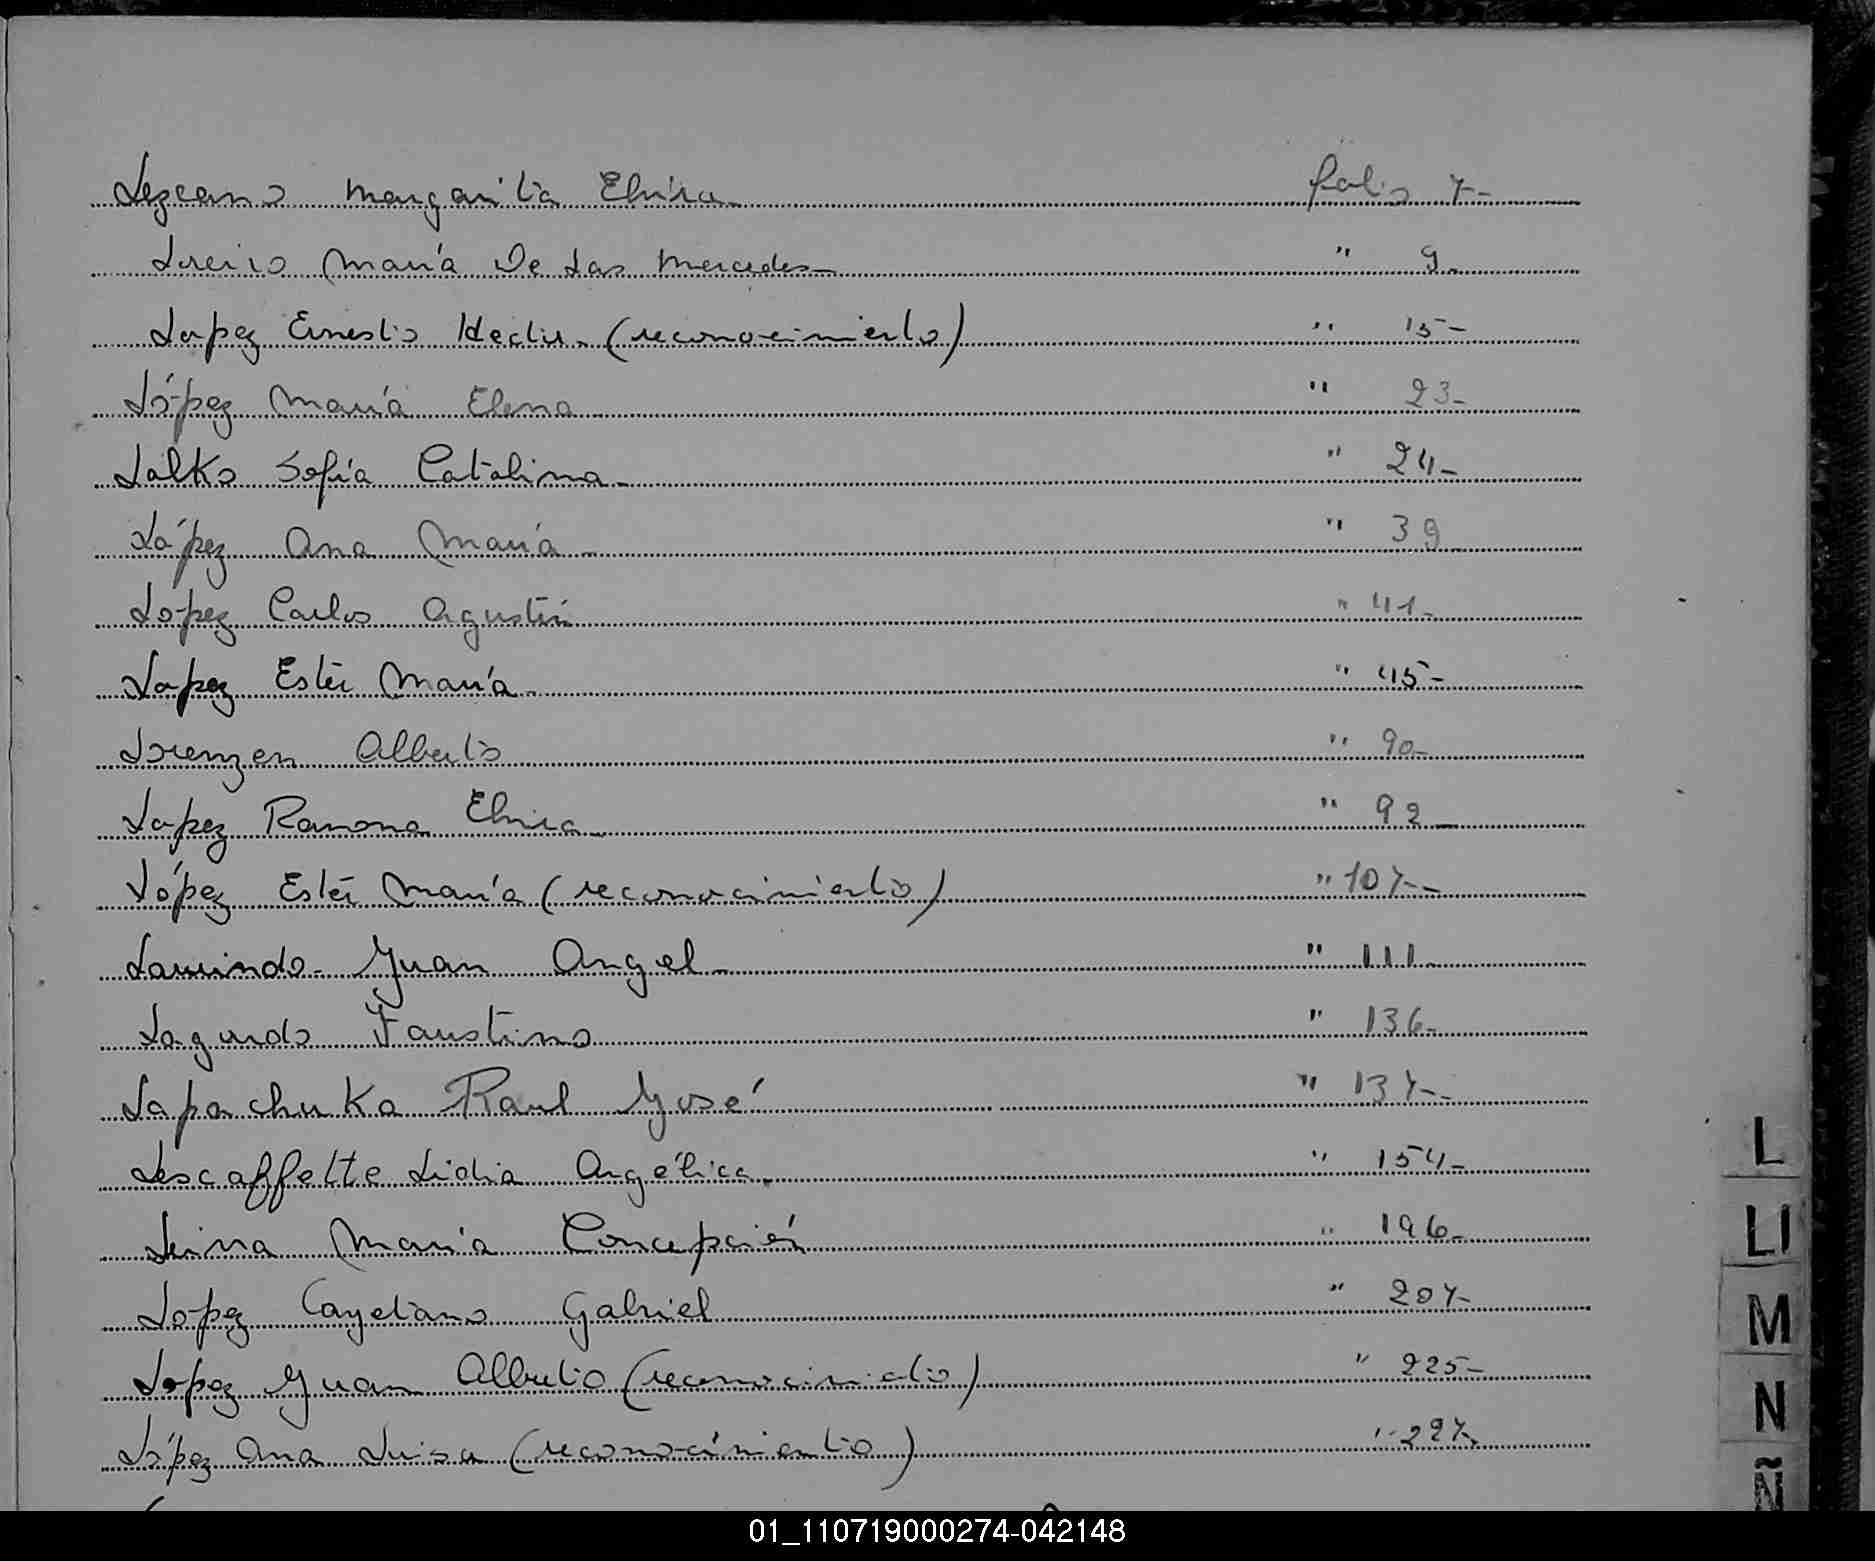 Lezcano Margarita Elvira folio 7-
Loreiro María De Las Mercedes " 9-
Lopez Ernesto Hector (reconocimiento) " 15-
López María Elena " 23-
Lalko Sofía Catalina " 24-
López Ana María " 39-
Lopez Carlos Agustín " 41-
Lopez Estér María " 45-
Lorenzen Alberto " 90-
Lopez Ramona Elvira " 92-
López Estér María (reconocimiento) " 107-
Juan Angel " 111-
Faustino " 136-
Lapachuka Raul José " 137-
Lescaffette Lidia Angélica " 154-
Leiva María Concepción " 196-
Lopez Cayetano Gabriel " 207-
Lopez Juan Alberto (reconocimiento) " 225-
López Ana Luisa (reconocimiento) " 227-
L
LI
M
N
Ñ
01_110719000274-042148